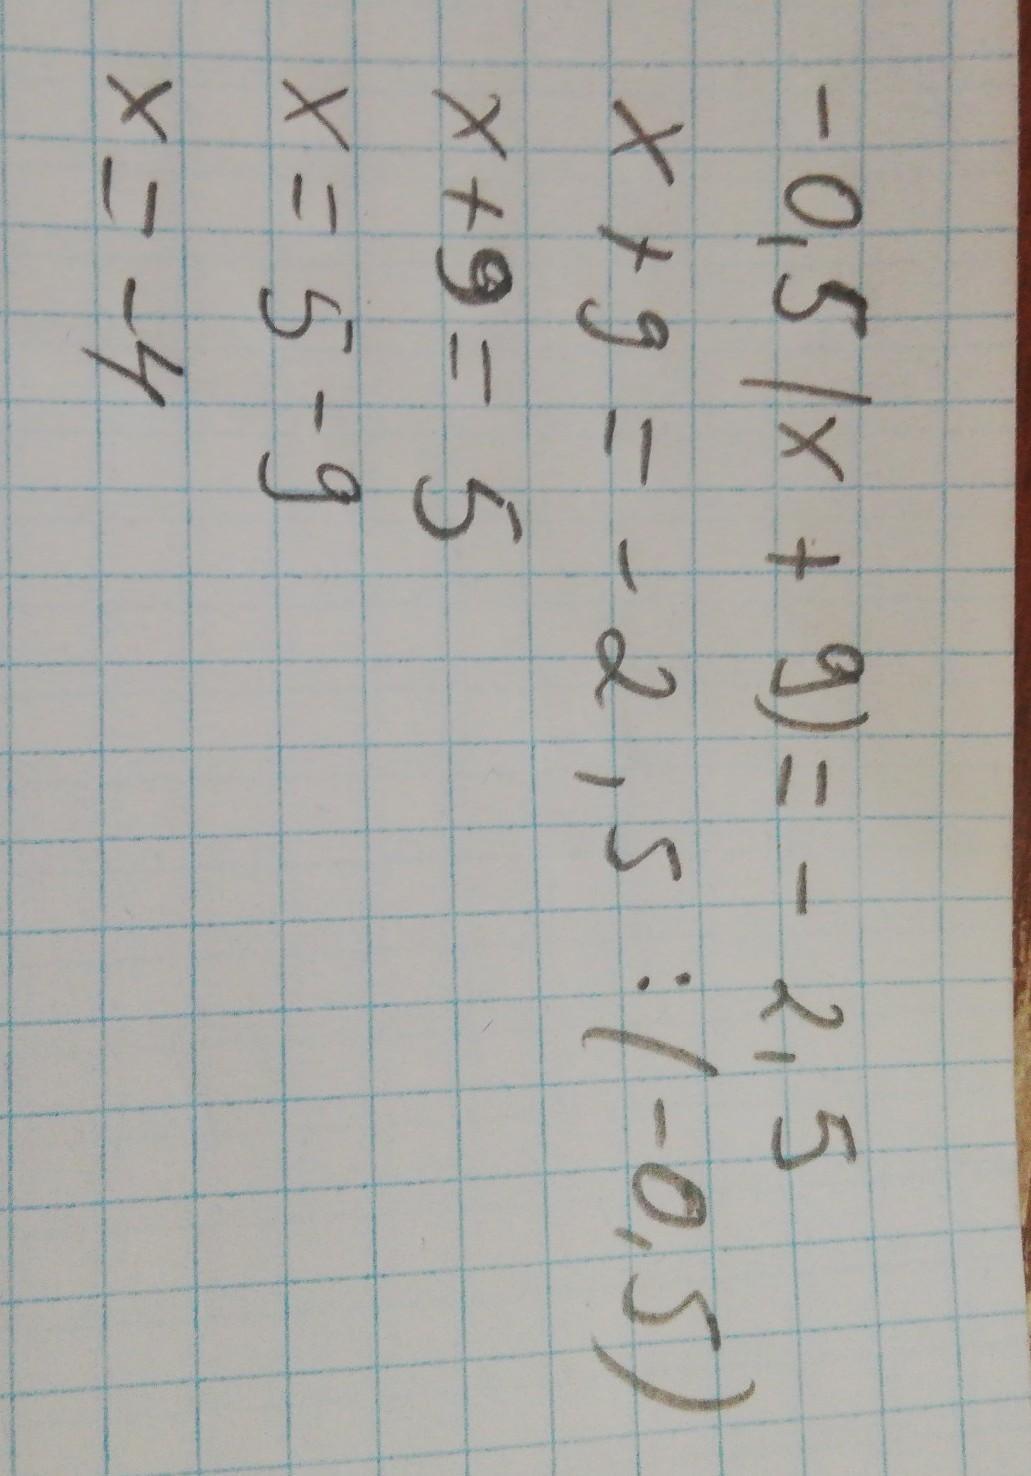 -0,5(x + 9) = - 2,5
x + 9 = - 2,5 : (-0,5)
x + 9 = 5
x = 5 - 9
x = -4